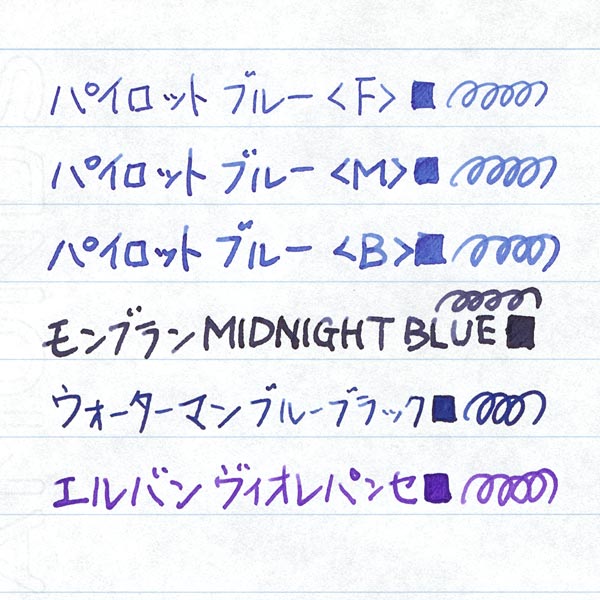 パイロット ブルー <F>
パイロット ブルー <M>
パイロット ブルー <B>
モンブラン MIDNIGHT BLUE
ウォーターマン ブルーブラック
エルバン ヴィオレパンセ